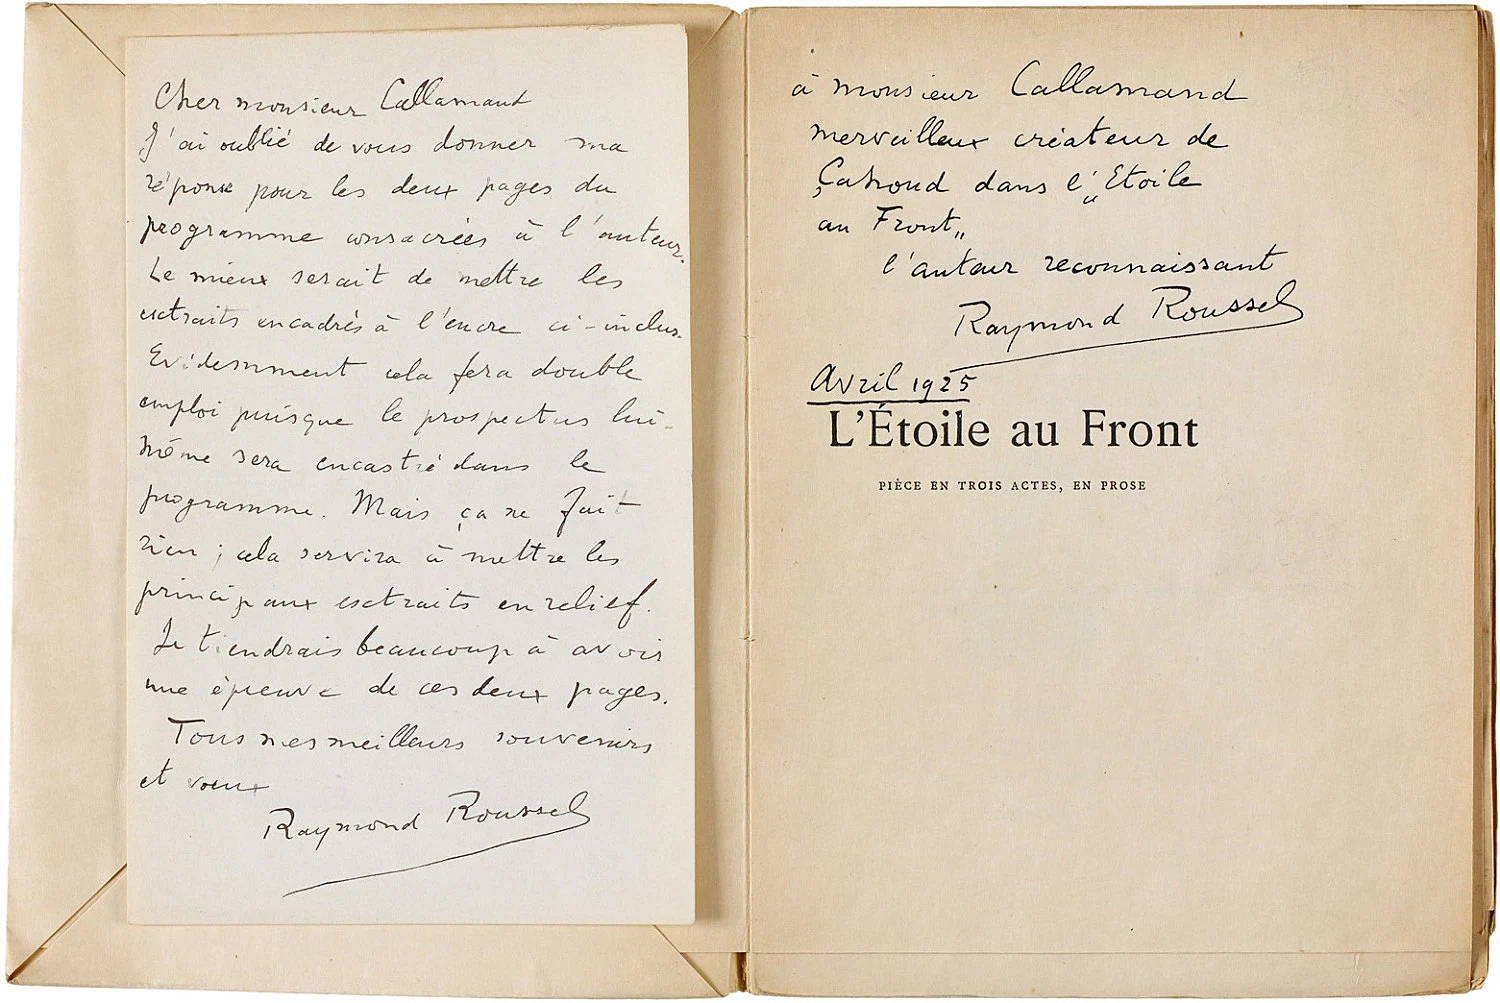 Cher monsieur Callamand
J'ai oublié de vous donner ma
réponse pour les deux pages du
programme consacrées à l'auteur.
Le mieux serait de mettre les
extraits encadrés à l'encre ci-inclus.
Evidemment cela fera double
emploi puisque le prospectus lui-
même sera encastré dans le
programme. Mais ça ne fait
rien ; cela servira à mettre les
principaux extraits en relief.
Je tiendrais beaucoup à avoir
une épreuve de ces deux pages.
Tous mes meilleurs souvenirs
et voeux
Raymond Roussel
à monsieur Callamand
merveilleux créateur de
dans l'"Etoile
au Front"
l'auteur reconnaissant
Raymond Roussel
Avril 1925
L'Étoile au Front
PIÈCE EN TROIS ACTES, EN PROSE